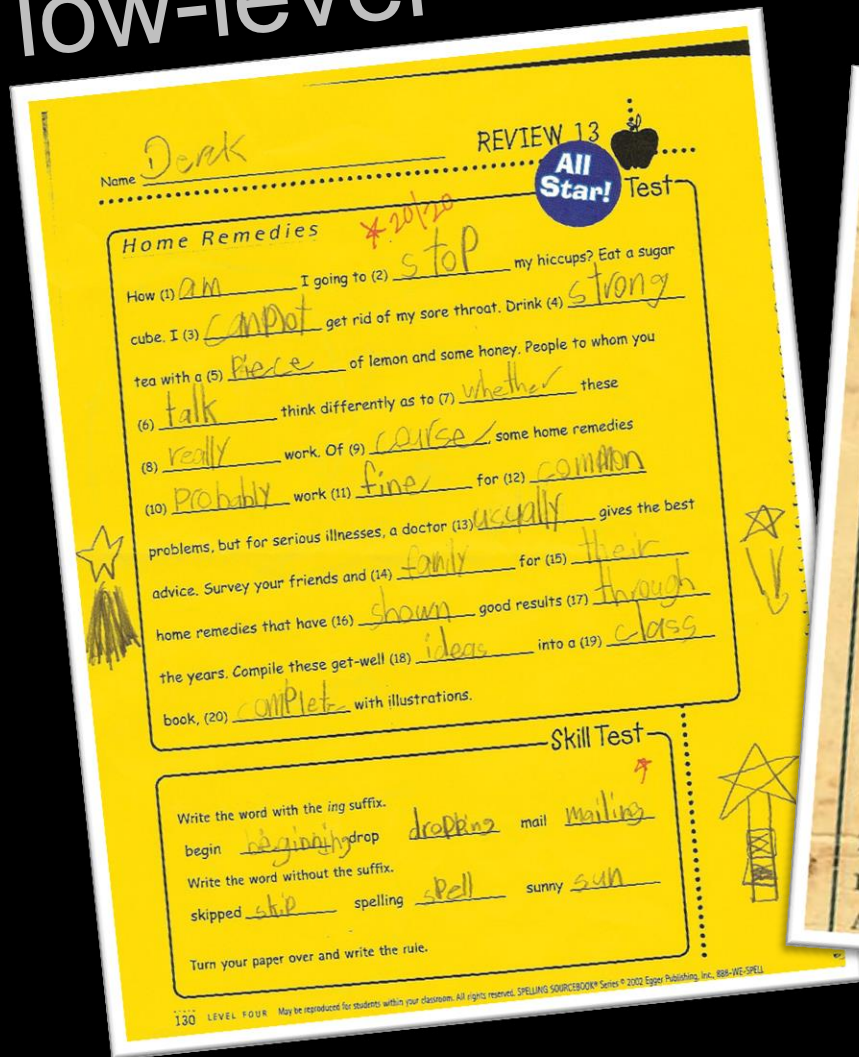 low-level
Name Derek REVIEW 13
All
Star! Test
Home Remedies 20/20
How (1) am I going to (2) stop my hiccups? Eat a sugar
cube. I (3) cannot get rid of my sore throat. Drink (4) strong
tea with a (5) Piece of lemon and some honey. People to whom you
(6) talk think differently as to (7) whether these
(8) really work. Of (9) course, some home remedies
(10) Probably work (11) fine for (12) common
problems, but for serious illnesses, a doctor (13) usually gives the best
advice. Survey your friends and (14) family for (15) their
home remedies that have (16) shown good results (17) through
the years. Compile these get-well (18) ideas into a (19) class
book, (20) complete with illustrations.
Skill Test
Write the word with the ing suffix.
begin beginning drop dropping mail mailing
Write the word without the suffix.
skipped skip spelling spell sunny sun
Turn your paper over and write the rule.
130 LEVEL FOUR May be reproduced for students within your classroom. All rights reserved. SPELLING SOURCEBOOK® Series © 2002 Egger Publishing, Inc., 888-WE-SPELL